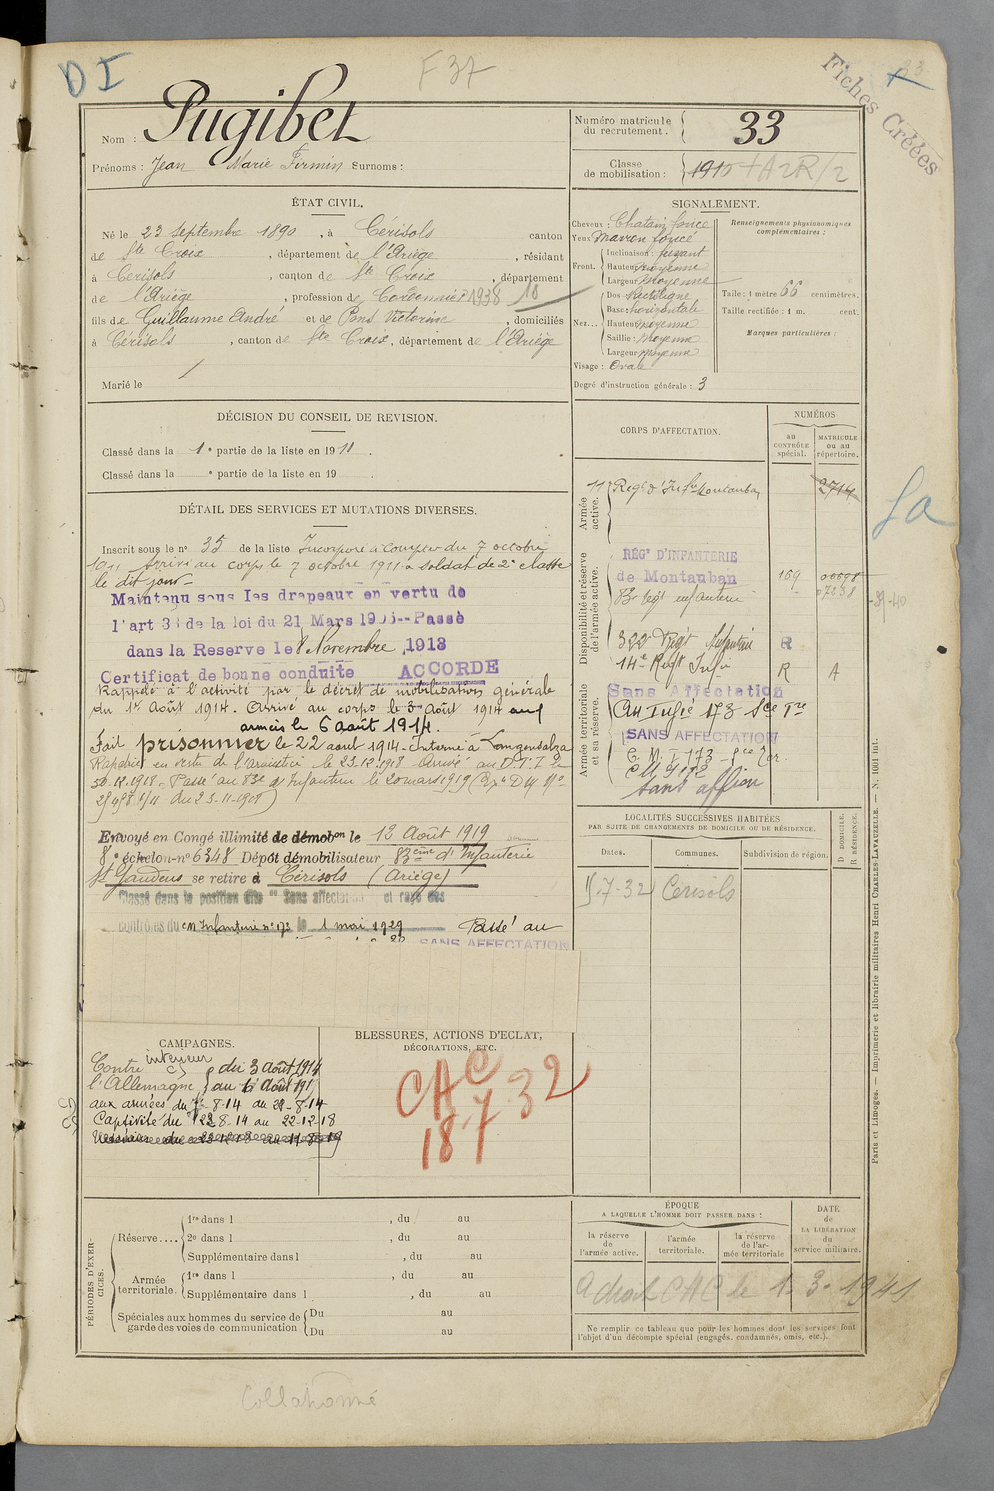 D I
F 37
Fiches Créées
Nom : Pugibet
Prénoms : Jean Marie Firmin Surnoms :
Numéro matricule du recrutement. 33
Classe de mobilisation : 1910 + A2R/2
ÉTAT CIVIL.
Né le 23 septembre 1890, à Cérisols canton
de Ste Croix, département de l'Ariège, résidant
à Cerisols, canton de Ste Croix, département
de l'Ariège, profession de Cordonnier 1938 10
fils de Guillaume André et de Pons Victorine, domiciliés
à Cérisols, canton de Ste Croix, département de l'Ariège
Marié le
SIGNALEMENT.
Cheveux : Chatain foncé
Yeux Marron foncé
Front. Inclinaison : fuyant
Hauteur moyenne
Largeur moyenne
Nez... Dos rectiligne
Base : horizontale
Hauteur moyenne
Saillie : moyenne
Largeur moyenne
Visage : Ovale
Renseignements physionomiques complémentaires :
Taille : 1 mètre 66 centimètres.
Taille rectifiée : 1 m. cent.
Marques particulières :
Degré d'instruction générale : 3
DÉCISION DU CONSEIL DE REVISION.
Classé dans la 1e partie de la liste en 1911.
Classé dans la e partie de la liste en 19 .
DÉTAIL DES SERVICES ET MUTATIONS DIVERSES.
Inscrit sous le no 35 de la liste Incorporé à compter du 7 octobre
1911 Arrivé au corps le 7 octobre 1911 - soldat de 2e classe
le dit jour
Maintenu sous les drapeaux en vertu de
l'art 33 de la loi du 21 Mars 1905 -- Passé
dans la Reserve le 8 Novembre 1913
Certificat de bonne conduite ACCORDE
Rappelé à l'activité par le décret de mobilisation générale
du 1er Août 1914. Arrivé au corps le 3 Août 1914 aux
armées le 6 août 1914.
Fait prisonnier le 22 aout 1914 - Interné à Langensalza
Rapatrié en vertu de l'armistice le 23.12.1918 Arrivé au D.T.I le
30.12.1918. Passé au 83e d'Infanterie le 20 mars 1919
Envoyé en Congé illimité de démobon le 12 Août 1919
8e échelon - no 6348 Dépôt démobilisateur 83eme d'Infanterie
St Gaudens se retire à Cérisols (Ariège)
Classé dans la position dite "Sans affectation" et rayé des
contrôles du CM Infanterie no 173 le 1 mai 1929 Passé au
SANS AFFECTATION
CORPS D'AFFECTATION.
NUMÉROS
au CONTRÔLE spécial.
MATRICULE ou au répertoire.
Armée active.
11 Regt d'Infie Montauban 2714
Disponibilité et réserve de l'armée active.
RÉGt D'INFANTERIE
de Montauban 169
83e regt infanterie
322e Regt Infanterie R
14e Regt Infie R A
Armée territoriale et sa réserve.
Sans Affectation
SANS AFFECTATION
sans affion
LOCALITÉS SUCCESSIVES HABITÉES
PAR SUITE DE CHANGEMENTS DE DOMICILE OU DE RÉSIDENCE.
Dates. Communes. Subdivision de région. D DOMICILE. R RÉSIDENCE.
7-32 Cerisols
CAMPAGNES.
Contre l'Allemagne
intérieur du 3 Août 1914
au 6 Août 1914
aux armées du 7-8-14 au 21-8-14
Captivité du 22 8-14 au 22-12-18
BLESSURES, ACTIONS D'ÉCLAT,
DÉCORATIONS, ETC.
CAC
18 7 32
PÉRIODES D'EXERCICES.
Réserve.... 1re dans l , du au
2e dans l , du au
Supplémentaire dans l , du au
Armée territoriale. 1re dans l , du au
Supplémentaire dans l , du au
Spéciales aux hommes du service de garde des voies de communication Du au
Du au
ÉPOQUE
A LAQUELLE L'HOMME DOIT PASSER DANS :
la réserve de l'armée active.
l'armée territoriale.
la réserve de l'armée territoriale
DATE de LA LIBÉRATION du service militaire.
A droit CAC le 1-3-1941
Ne remplir ce tableau que pour les hommes dont les services font
l'objet d'un décompte spécial (engagés, condamnés, omis, etc.).
Paris et Limoges. — Imprimerie et librairie militaires Henri CHARLES-LAVAUZELLE. — N. 1601 int.
Collationné